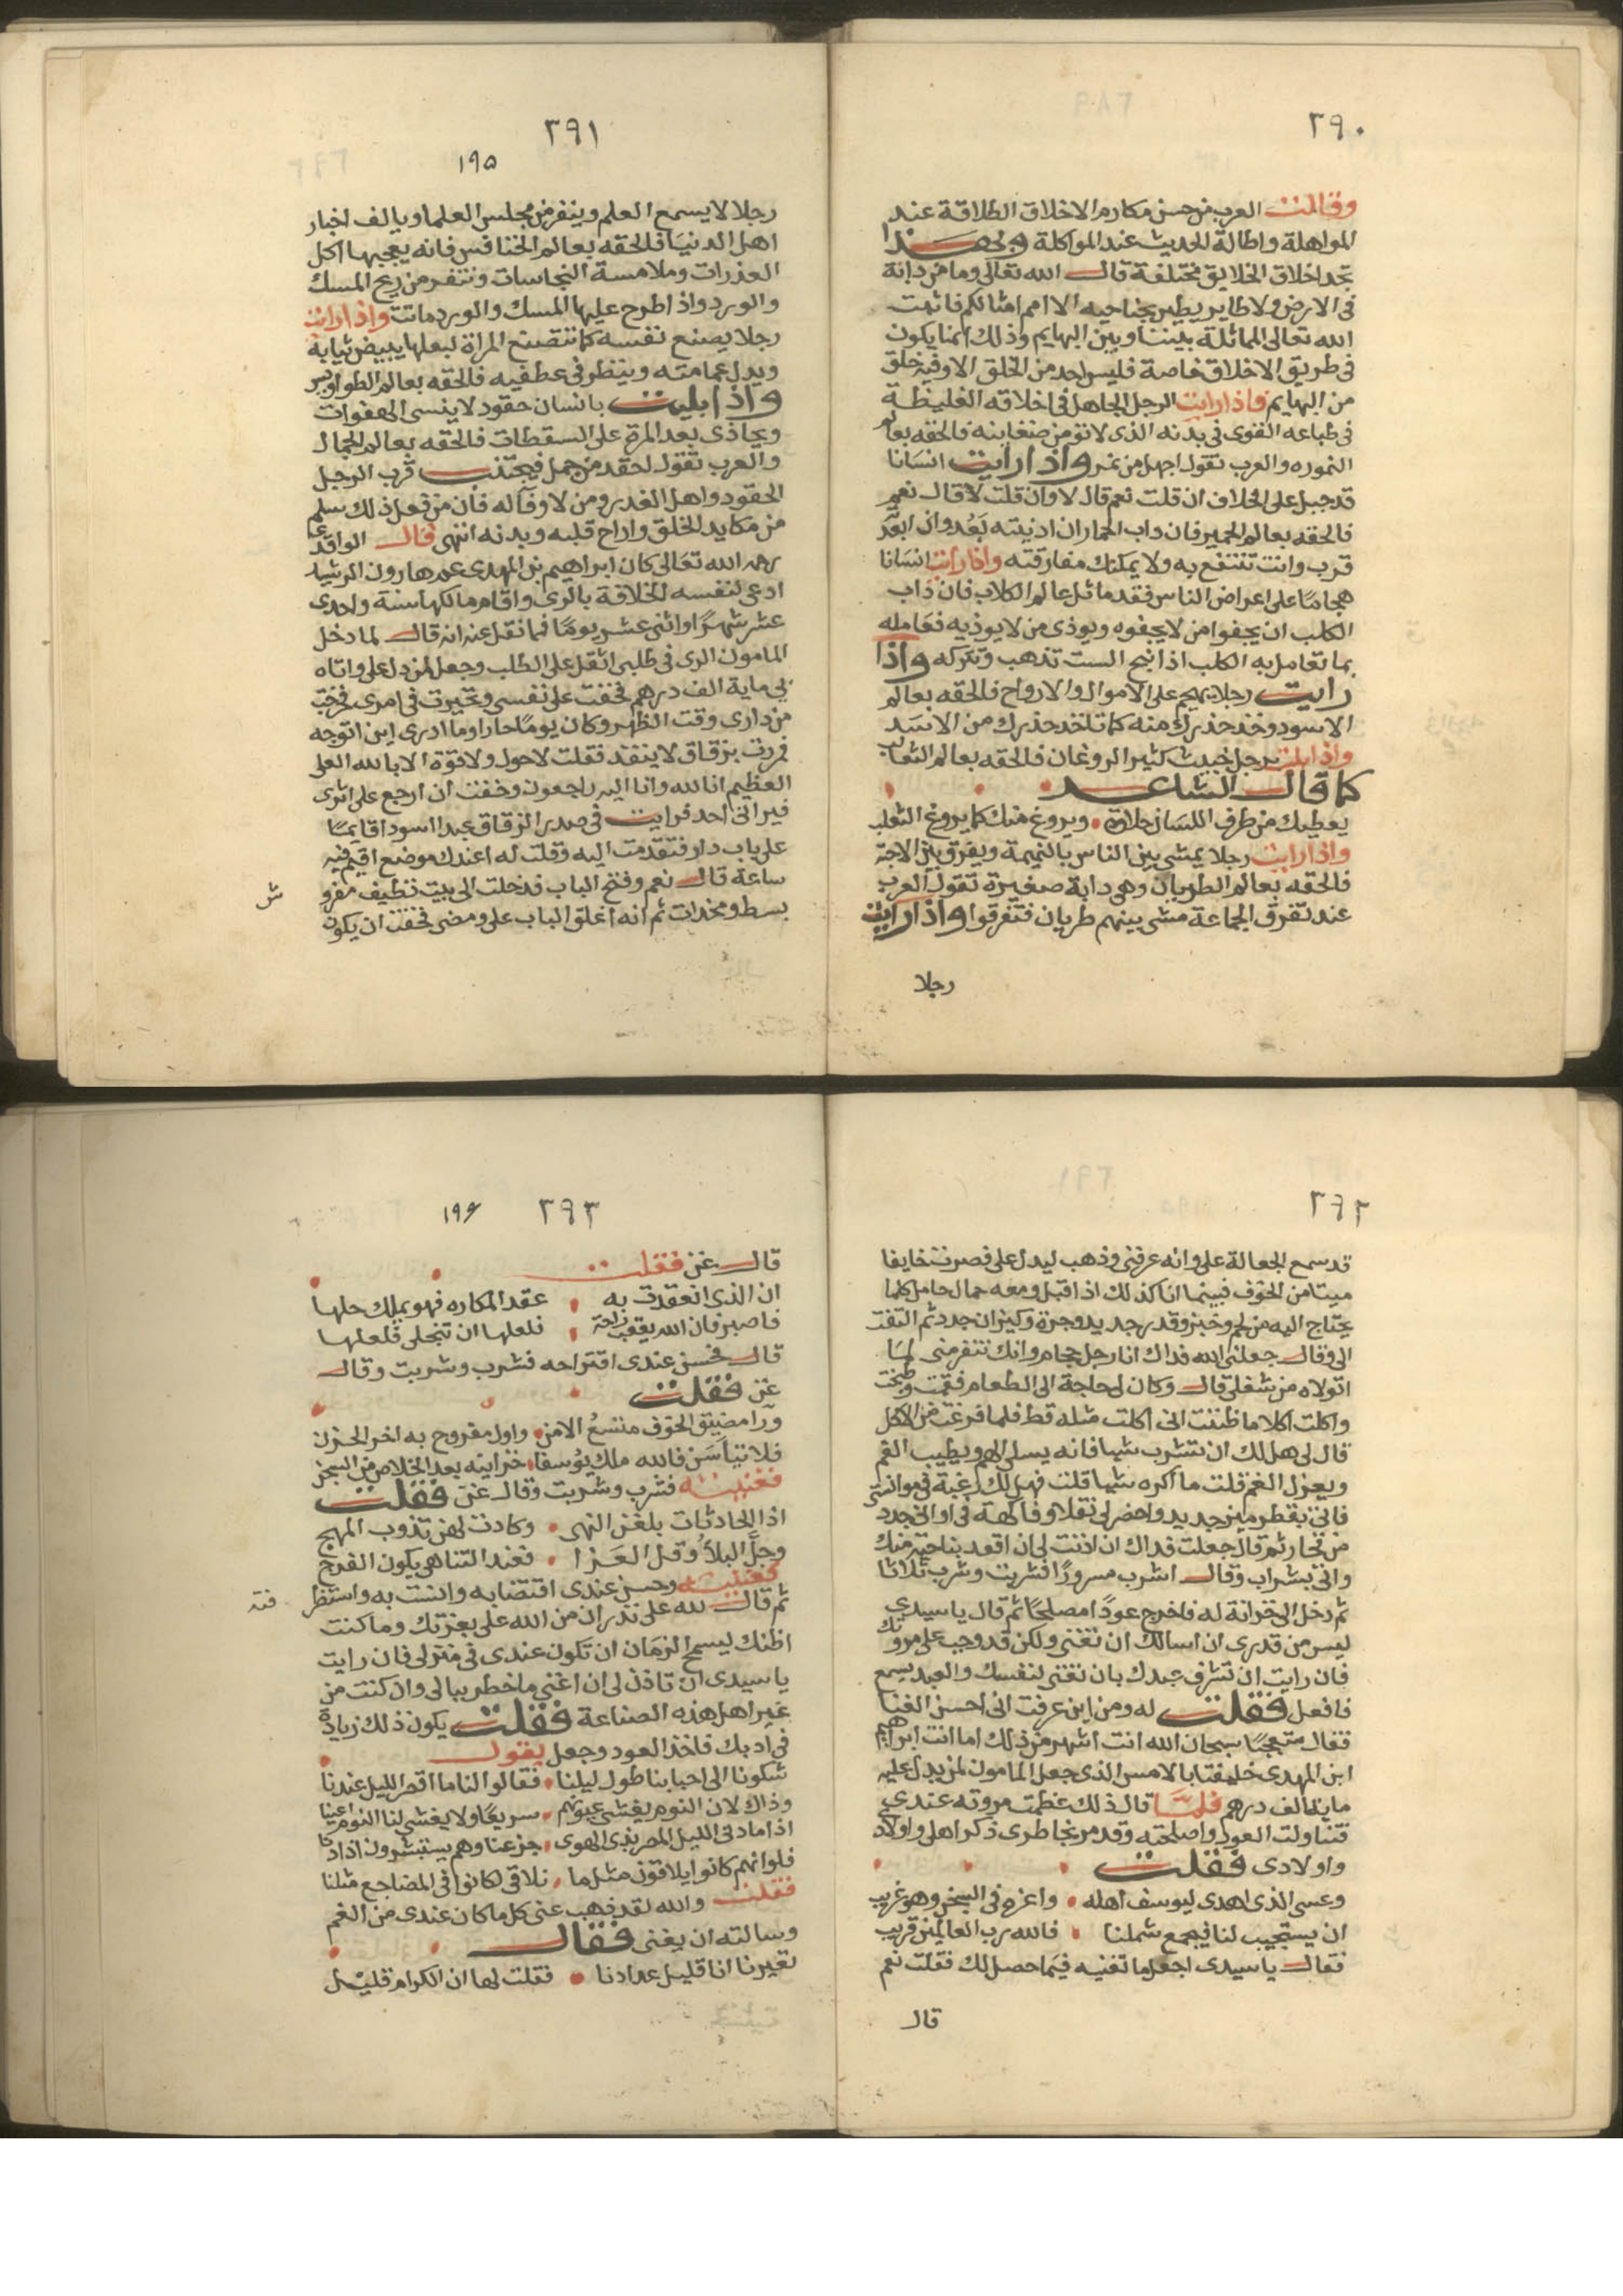 ٢٩٠
وقالت العرب من حسن مكارم الاخلاق الطلاقة عند
المواهلة واطالة الحديث عند المواكلة
تجد اخلاق الخلايق مختلفة قال الله تعالى وما من دابة
فى الارض ولا طاير يطير بجناحيه الا امم امثالكم فاثبت
الله تعالى المماثلة بيننا وبين البهايم وذلك انما يكون
فى طريق الاخلاق خاصة فليس احد من الخلق الا وفيه خلق
من البهايم فاذا رايت الرجل الجاهل فى اخلاقه الغليظة
فى طباعه القوى فى بدنه الذى لا تؤمن ضغاينه فالحقه بعالم
النموره والعرب تقول اجهل من نمر واذا رايت انسانا
قد جبل على الخلاف ان قلت نعم قال لا وان قلت لا قال نعم
فالحقه بعالم الحمير فان داب الحمار ان ادنيته بَعُد وان ابعد
قرب وانت تنتفع به ولا يمكنك مفارقته واذا رايت انسانا
هجاما على اعراض الناس فقد ماثل عالم الكلاب فان داب
الكلب ان يجفوا من لا يجفوه ويوذى من لا يوذيه فعامله
بما تعامل به الكلب اذا نبح الست تذهب وتتركه واذا
رايت رجلا يهجم على الاموال والارواح فالحقه بعالم
الاسود وخذ حذرك منه كما تاخذ حذرك من الاسد
واذا بليت برجل خبيث كثير الروغان فالحقه بعالم الثعالب
كما قال الشاعر
يعطيك من طرف اللسان حلاوة ويروغ منك كما يروغ الثعلب
واذا رايت رجلا يمشى بين الناس بالنميمة ويفرق بين الاحبة
فالحقه بعالم الظربان وهى دابة صغيرة تقول العرب
عند تفرق الجماعة مشى بينهم ظربان فتفرقوا واذا رايت
رجلا
٢٩١
١٩٥
رجلا لا يسمع العلم وينفر من مجلس العلما ويالف اخبار
اهل الدنيا فالحقه بعالم الخنافس فانه يعجبها اكل
العذرات وملامسة النجاسات وتنفر من ريح المسك
والورد واذا طرح عليها المسك والورد ماتت واذا رايت
رجلا يصنع نفسه كما تتصنع المراة لبعلها يبيض ثيابه
ويدل عمامته وينظر فى عطفيه فالحقه بعالم الطواويس
واذا بليت بانسان حقود لا ينسى الهفوات
ويجاذى بعد المرة على السقطات فالحقه بعالم الجمال
والعرب تقول احقد من جمل فيجتنب قرب الرجل
الحقود واهل الغدر ومن لا وفاله فان من فعل ذلك سلم
من مكايد الخلق واراح قلبه وبدنه انتهى قال الواقدى
رحمه الله تعالى كان ابراهيم بن المهدى عم هارون الرشيد
ادعى لنفسه الخلافة بالرى واقام مالكها سنة واحدى
عشر شهرًا واثنى عشر يومًا فما نقل عنه انه قال لما دخل
المامون الرى فى طلبى اثقل على الطلب وجعل لمن دل على واتاه
بى ماية الف درهم فخفت على نفسى وتحيرت فى امرى فخرجت
من دارى وقت الظهر وكان يومًا حارا وما ادرى اين اتوجه
فمررت بزقاق لا ينفذ فقلت لاحول ولا قوة الا بالله العلى
العظيم انا لله وانا اليه راجعون وخفت ان ارجع على اثرى
فيرانى احد فرايت فى صدر الزقاق عبدا اسود قايما
على باب دار فتقدمت اليه وقلت له اعندك موضع اقيم فيه
ساعة قال نعم وفتح الباب فدخلت الى بيت نظيف مفرو
ش
بسط ومخدات ثم انه اغلق الباب على ومضى فخفت ان يكون
٢٩٢
قد سمع الجعالة على وانه عرفنى وذهب ليدل على فصرت خايفا
ميتا من الخوف فبينما انا كذلك اذ اقبل ومعه حمال حامل كلما
يحتاج اليه من لحم وخبز وقدر جديد وجرة وكيزان جدد ثم التفت
الى وقال جعلنى الله فداك انا رجل حجام وانك تنفر منى لما
اتولاه من شغلى قال وكان لى حاجة الى الطعام فقمت وطبخت
واكلت اكلا ما ظننت انى اكلت مثله قط فلما فرغت من الاكل
قال لى هل لك ان تشرب شيا فانه يسلى الهم ويطيب الغم
ويعزل الغم قلت ما اكره شيا قلت فهل لك رغبة فى موانستى
فاتى بقطرميز جديد واحضر لى نقلا وفاكهة فى اوانى جدد
من فخار ثم قال جعلت فداك ان اذنت لى ان اقعد بناحية منك
واتى بشراب وقال اشرب مسرورًا فشربت وشرب ثلاثا
ثم دخل الى خزانة له فاخرج عودًا مصلحًا ثم قال يا سيدى
ليس من قدرى ان اسالك ان تغنى ولكن قد وجب على مروتك
فان رايت ان تشرف عبدك بان تغنى لنفسك والعبد يسمع
فافعل فقلت له ومن اين عرفت انى احسن الغنا
فقال متعجبًا سبحان الله انت اشهر من ذلك اما انت ابراهيم
ابن المهدى خليفتنا بالامس الذى جعل المامون لمن يدل عليه
ماية الف درهم فلما قال ذلك عظمت مروته عندى
فتناولت العود واصلحته وقد مر بخاطرى ذكر اهلى واولاد
واولادى فقلت
وعسى الذى اهدى ليوسف اهله واعزه فى السجن وهو غريب
ان يستجيب لنا فيجمع شملنا فالله رب العالمين قريب
فقال يا سيدى اجعل ما تغنيه فيما حصل لك فقلت نعم
قال
٢٩٣ ١٩٦
قال غن فقلت
ان الذى انعقدت به عقد المكاره فهو يملك حلها
فاصبر فان الله يعقب راحة فلعلها ان تنجلى فلعلها
قال فحسن عندى اقتراحه فشرب وشربت وقال
غن فقلت
ورا مضيق الخوف متسعُ الامن واول مفروح به اخر الحزن
فلا تياسَن فالله ملك يوسفا خزاينه بعد الخلاص من السجن
فغنيته فشرب وشربت وقال غن فقلت
اذا الحادثات بلغن النهى وكادت لهن تذوب المهج
وجلَّ البلاُ وقل العزا فعند التناهى يكون الفرج
فغنيته وحسن عندى اقتضابه وانست به واستظر
فته
ثم قال لله على نذر ان من الله على بعزتك وما كنت
اظنك ليسمح الزمان ان تكون عندى فى منزلى فان رايت
يا سيدى ان تاذن لى ان اغنى ما خطر ببالى وان كنت من
غير اهل هذه الصناعة فقلت يكون ذلك زيادة
فى ادبك فاخذ العود وجعل يقول
شكونا الى احبابنا طول ليلنا فقالوا لنا ما اقصر الليل عندنا
وذاك لان النوم يغشى عيونهم سريعًا ولا يغشى لنا النوم اعينا
اذا ما دنى الليل المضر بذى الهوى جزعنا وهم يستبشرون اذا دنا
فلو انهم كانوا يلاقون مثل ما نلاقى لكانوا فى المضاجع مثلنا
فقلت والله لقد ذهب عنى كل ما كان عندى من الغم
وسالته ان يغنى فقال
تعيرنا انا قليل عدادنا فقلت لها ان الكرام قليل